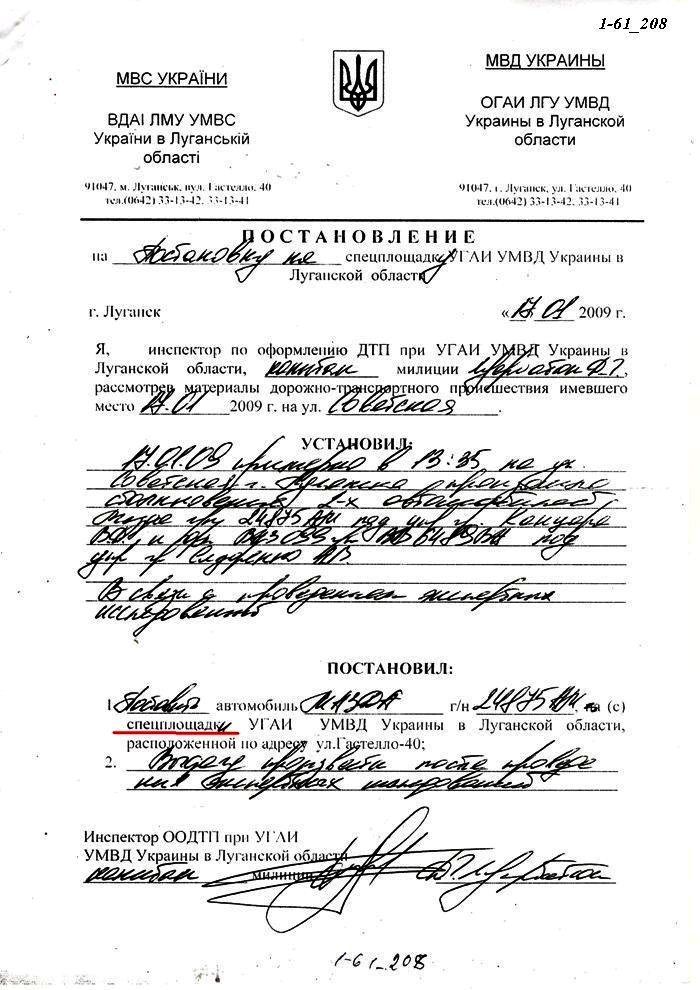 1-61_208
МВС УКРАЇНИ
ВДАІ ЛМУ УМВС
України в Луганській
області
91047, м. Луганськ, вул. Гастелло, 40
тел.(0642) 33-13-42, 33-13-41
МВД УКРАИНЫ
ОГАИ ЛГУ УМВД
Украины в Луганской
области
91047, г. Луганск, ул. Гастелло, 40
тел.(0642) 33-13-42, 33-13-41
ПОСТАНОВЛЕНИЕ
на Постановку на спецплощадку УГАИ УМВД Украины в
Луганской области
г. Луганск «17» 01 2009 г.
Я, инспектор по оформлению ДТП при УГАИ УМВД Украины в
Луганской области, капитан милиции
рассмотрев материалы дорожно-транспортного происшествия имевшего
место 17.01 2009 г. на ул. Советская.
УСТАНОВИЛ:
17.01.09 примерно в 13:35 на ул.
Советская г. Луганска произошло
столкновение 2-х автомобилей
Мазда г/н 24875 АН под упр гр.
и ВАЗ под
упр гр
В связи с проведением экспертных
исследований
ПОСТАНОВИЛ:
1. Поставить автомобиль МАЗДА г/н 24875 АН, на (с)
спецплощадки УГАИ УМВД Украины в Луганской области,
расположенной по адресу ул.Гастелло-40;
2. Выдачу произвести после проведе
ния экспертных исследований
Инспектор ООДТП при УГАИ
УМВД Украины в Луганской области
капитан милиции
1-61_208